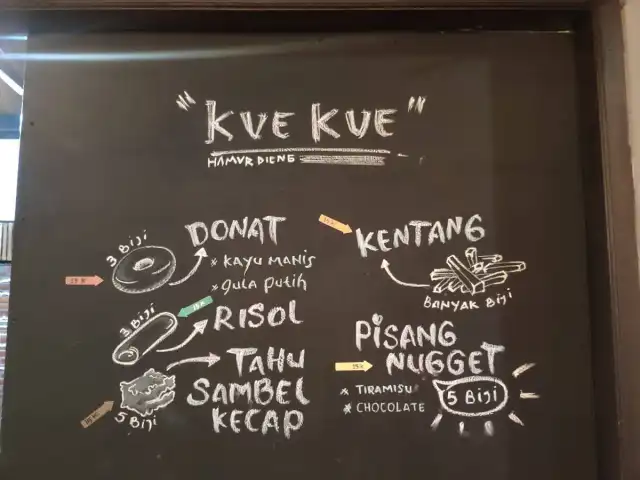 "KUE KUE"
HAMUR DIENG
3 Biji
DONAT
* KAYU MANIS
* gula putih
3 Biji
RISOL
TAHU
SAMBEL
KECAP
5 Biji
KENTANG
BANYAK Biji
PiSANG
NUGGET
* TIRAMISU
* CHOCOLATE
5 Biji